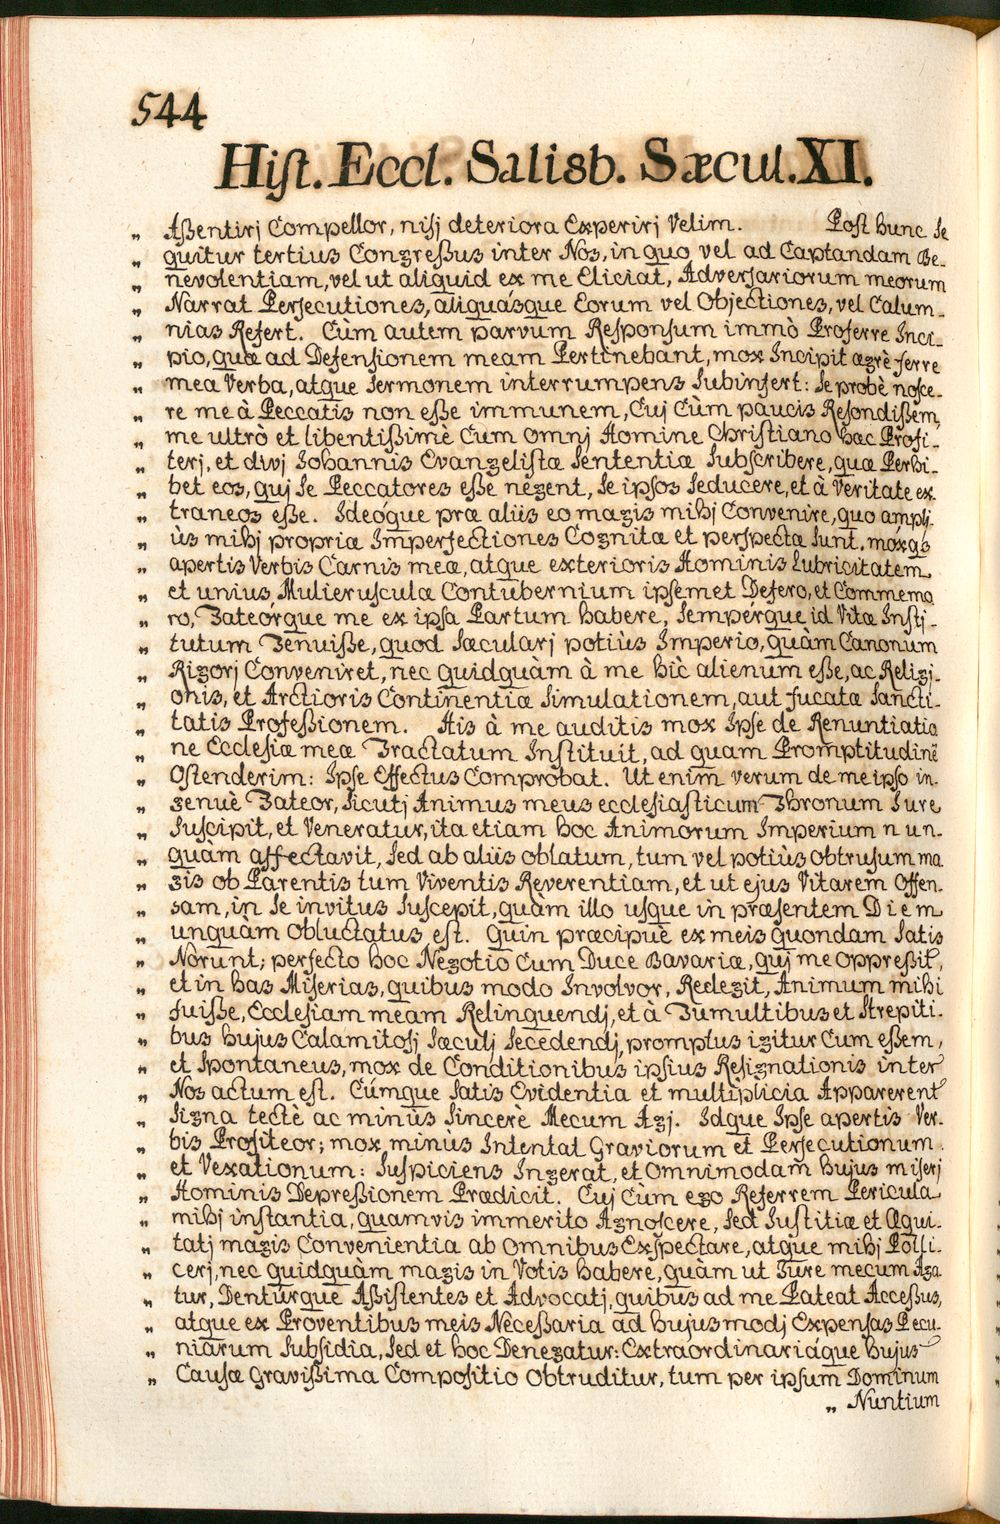 544
Hist. Eccl. Salisb. Sæcul. XI.
„ Aßentirj Compellor, nisj deteriora Experirj Velim. Post hunc Se
„ quitur tertius Congreßus inter Nos, in quo vel ad Captandam Be-
„ nevolentiam, vel ut aliquid ex me Eliciat, Adversariorum meorum
„ Narrat Persecutiones, aliquásque Eorum vel Objectiones, vel Calum-
„ nias Refert. Cùm autem parvum Responsum immò Proferre Inci-
„ pio, quæ ad Defensionem meam Pertinebant, mox Incipit ægrè ferre
„ mea Verba, atque Sermonem interrumpens Subinfert: Se probè nosce-
„ re me à Peccatis non eße immunem, Cuj Cùm paucis Resondißem,
„ me ultrò et libentißimè Cum omnj Homine Christiano hac Profi-
„ terj, et divj Johannis Evangelistæ Sententiæ Subscribere, quæ Perhi-
„ bet eos, quj Se Peccatores eße negent, Se ipsos Seducere, et à Veritate ex
„ traneos eße. Ideóque præ aliis eo magis mihj Convenire, quo ampli-
„ ùs mihj propriæ Imperfectiones Cognitæ et perspectæ Sunt, moxqs
„ apertis Verbis Carnis meæ, atque exterioris Hominis Lubricitatem
„ et unius Mulierusculæ Contubernium ipsemet Defero, et Commemo
„ ro, Fateórque me ex ipsa Partum habere, Sempérque id Vitæ Instj-
„ tutum Tenuiße, quod Sæcularj potiùs Imperio, quàm Canonum
„ Rigorj Conveniret, nec quidquàm à me hîc alienum eße, ac Religi-
„ onis, et Arctioris Continentiæ Simulationem, aut fucata Sancti-
„ tatis Profeßionem. His à me auditis mox Ipse de Renuntiatio
„ ne Ecclesiæ meæ Tractatum Instituit, ad quam Promptitudinẽ
„ Ostenderim: Ipse Effectus Comprobat. Ut enim verum de me ipso in-
„ genuè Fateor, Sicutj Animus meus ecclesiasticum Thronum Jure
„ Suscipit, et Veneratur, ita etiam hoc Animorum Imperium nun-
„ quàm affectavit, Sed ab aliis oblatum, tum vel potiùs obtrusum ma
„ gis ob Parentis tum Viventis Reverentiam, et ut ejus Vitarem Offen-
„ sam, in Se invitus Suscepit, quàm illo usque in præsentem Diem
„ unquàm Obluctatus est. Quin præcipuè ex meis quondam Satis
„ Nòrunt; perfecto hoc Negotio Cum Duce Bavariæ, quj me oppreßit,
„ et in has Miserias, quibus modo Involvor, Redegit, Animum mihi
„ fuiße, Ecclesiam meam Relinquendj, et à Tumultibus et Strepiti-
„ bus hujus Calamitosj Sæculj Secedendj, promptus igitur Cum eßem,
„ et Spontaneus, mox de Conditionibus ipsius Resignationis inter
„ Nos actum est. Cúmque Satis Evidentia et multiplicia Apparerent
„ Signa tectè ac minùs Sincerè Mecum Agj. Idque Ipse apertis Ver-
„ bis Profiteor; mox minùs Intentat Graviorum et Persecutionum
„ et Vexationum: Suspiciens Ingerat, et Omnimodam hujus miserj
„ Hominis Depreßionem Prædicit. Cuj Cùm ego Referrem Pericula
„ mihj instantia, quamvis immerito Agnoscere, Sed Justitiæ et Æqui-
„ tatj magis Convenientia ab Omnibus Exspectare, atque mihj Polli-
„ cerj, nec quidquàm magis in Votis habere, quàm ut Jure mecum Aga
„ tur, Dentúrque Aßistentes et Advocatj, quibus ad me Pateat Acceßus,
„ atque ex Proventibus meis Neceßaria ad hujusmodj Expensas Pecu-
„ niarum Subsidia, Sed et hoc Denegatur: Extraordinariáque hujus
„ Causæ Gravißima Compositio Obtruditur, tum per ipsum Dominum
„ Nuntium